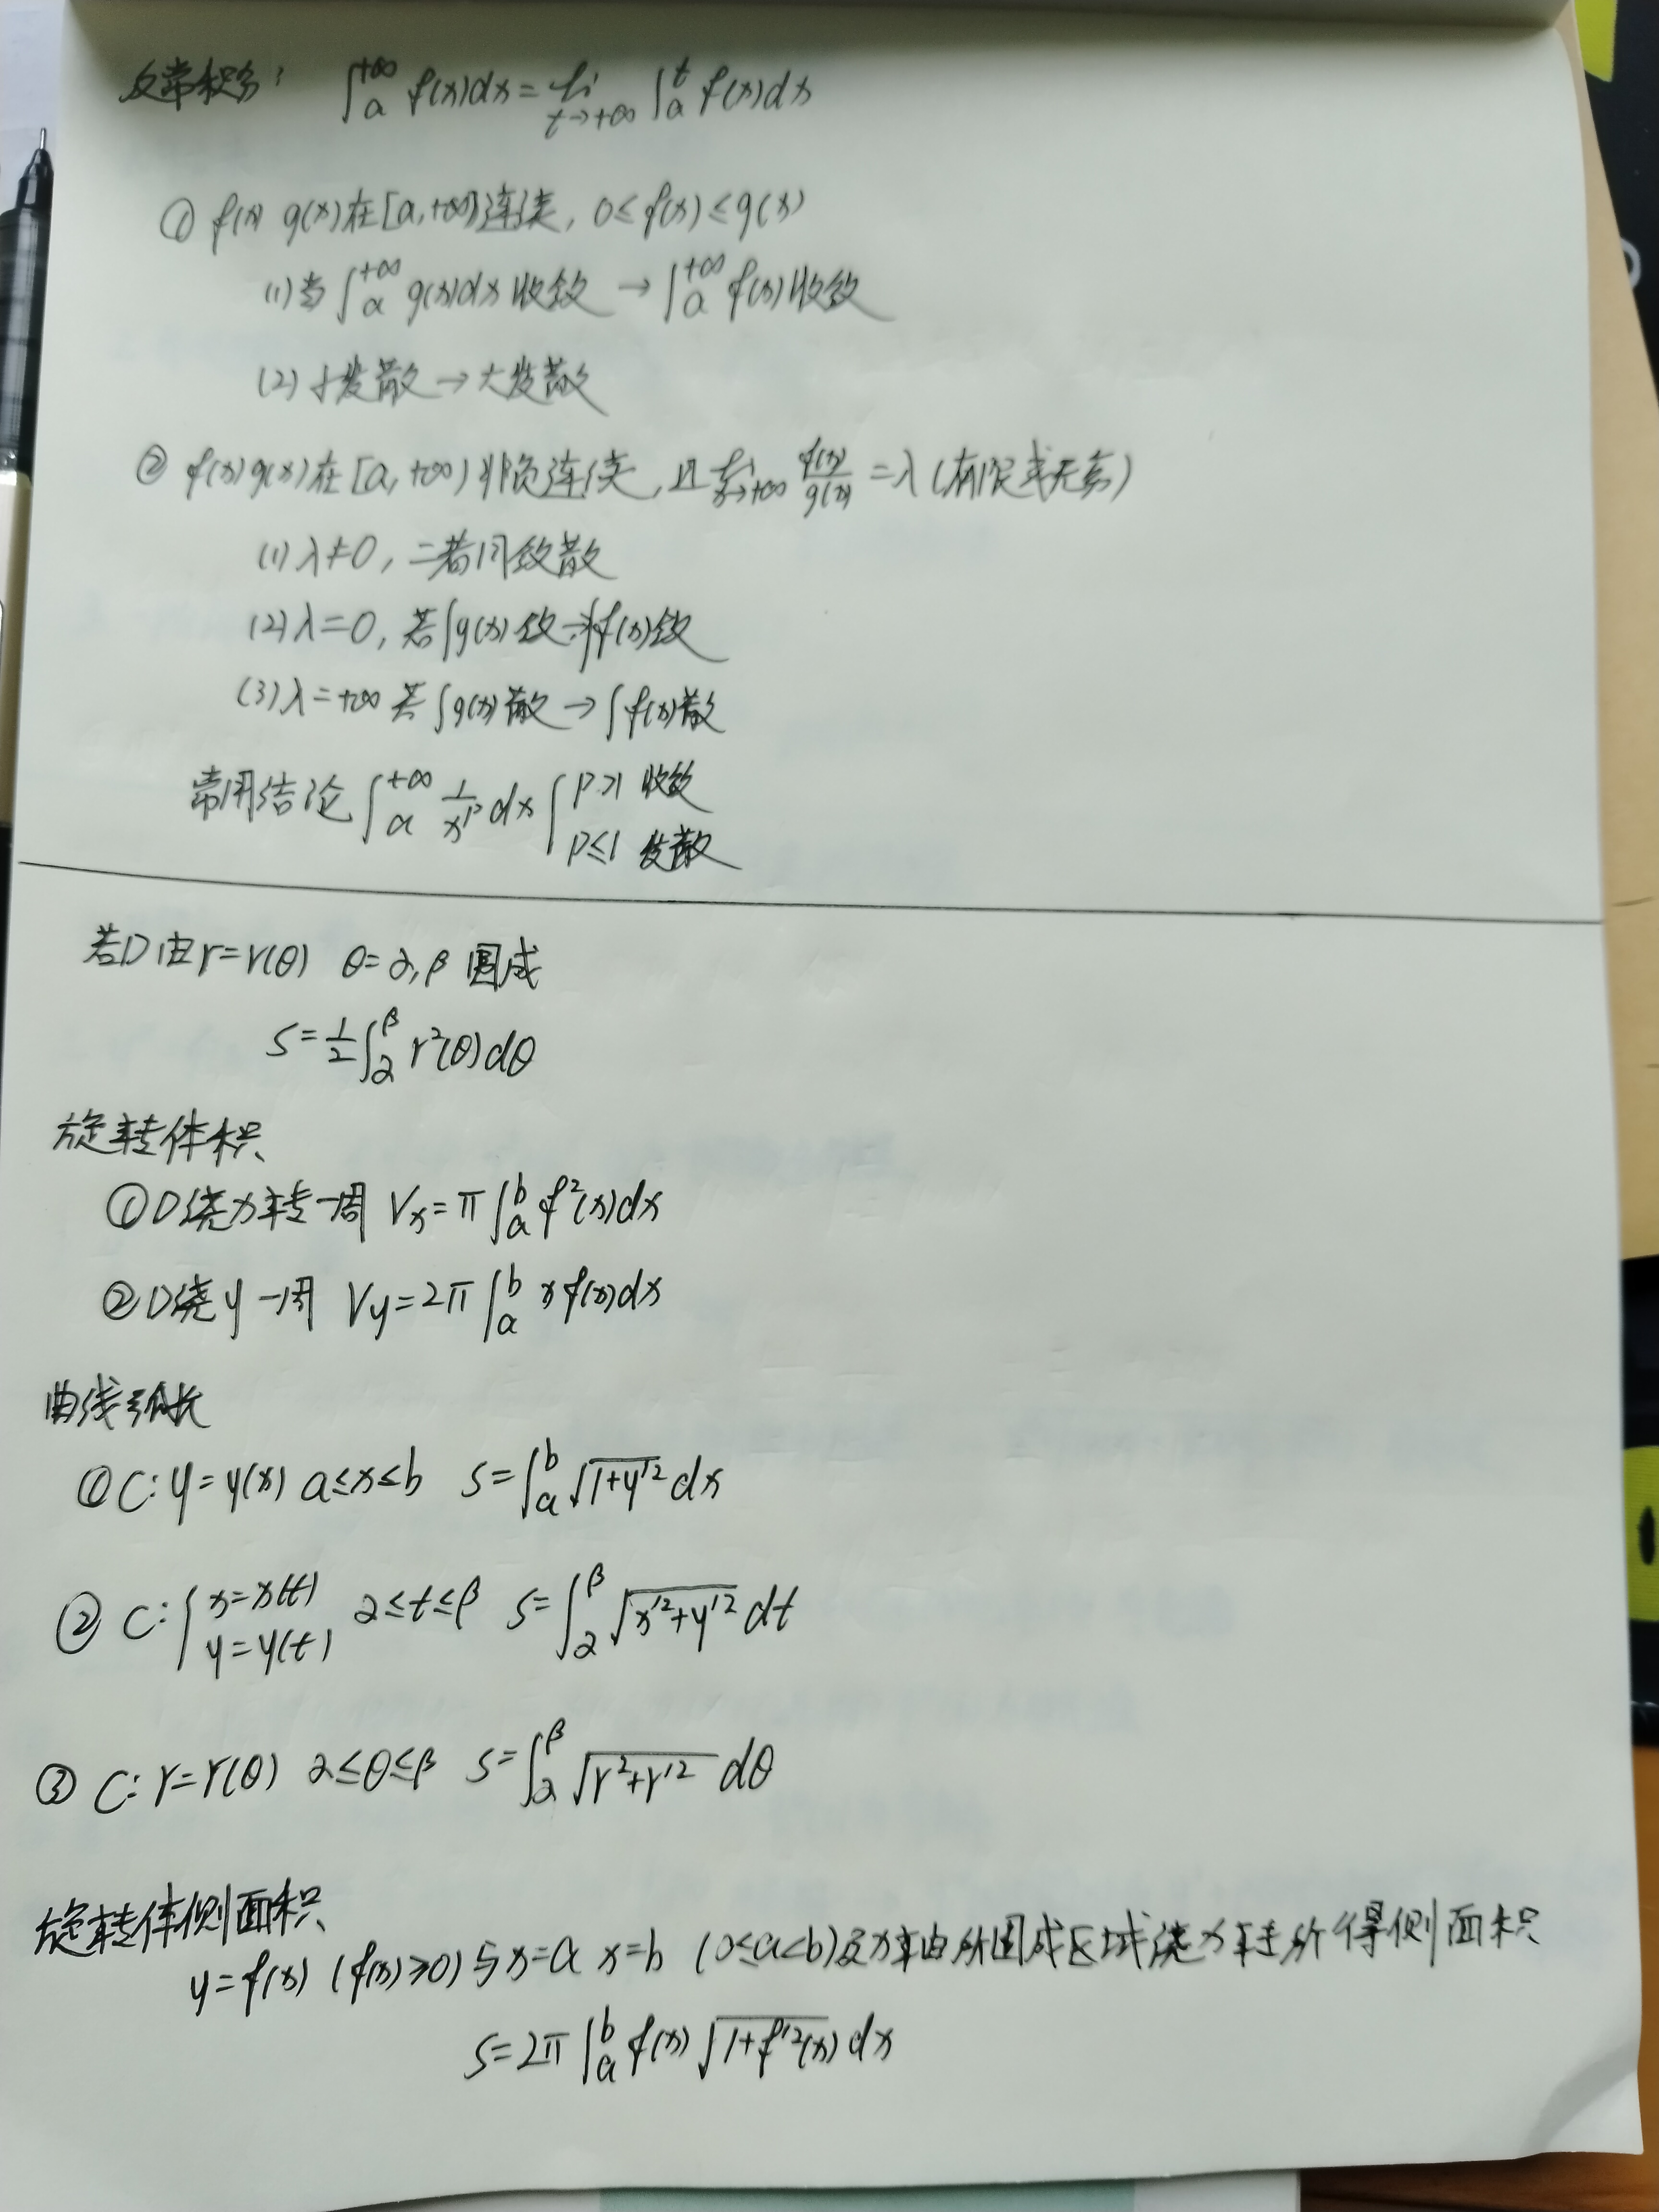 反常积分: ∫_a^{+∞} f(x)dx = lim_{t→+∞} ∫_a^t f(x)dx
① f(x) g(x)在[a,+∞)连续, 0≤f(x)≤g(x)
(1)当∫_a^{+∞} g(x)dx收敛 → ∫_a^{+∞} f(x)收敛
(2)小发散→大发散
② f(x)g(x)在[a,+∞)非负连续,且lim_{x→+∞} f(x)/g(x) = λ(有限或无穷)
(1)λ≠0, 二者同敛散
(2)λ=0, 若∫g(x)敛→∫f(x)敛
(3)λ=+∞ 若∫g(x)散→∫f(x)散
常用结论 ∫_a^{+∞} 1/x^p dx { p>1 收敛
p≤1 发散
若D由r=r(θ) θ=α,β围成
S=1/2 ∫_α^β r²(θ)dθ
旋转体积
①D绕x转一周 Vx=π∫_a^b f²(x)dx
②D绕y一周 Vy=2π∫_a^b xf(x)dx
曲线弧长
①C: y=y(x) a≤x≤b S=∫_a^b √(1+y'²) dx
②C: { x=x(t) y=y(t) α≤t≤β S=∫_α^β √(x'²+y'²) dt
③C: r=r(θ) α≤θ≤β S=∫_α^β √(r²+r'²) dθ
旋转体侧面积
y=f(x) (f(x)≥0)与x=a x=b (0≤a<b)及x轴由所围成区域绕x转所得侧面积
S=2π∫_a^b f(x)√(1+f'²(x)) dx